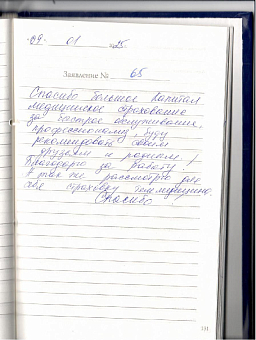 09 01 25
Заявление № 65
Спасибо большое Капитал
медицинское страхование
за быстрое обслуживание,
профессионому, буду
рекомировать своим
друзьям и родным!
Благодарю за работу
так же рассмотрю для
себя страховку телемедицина
Спасибо
131